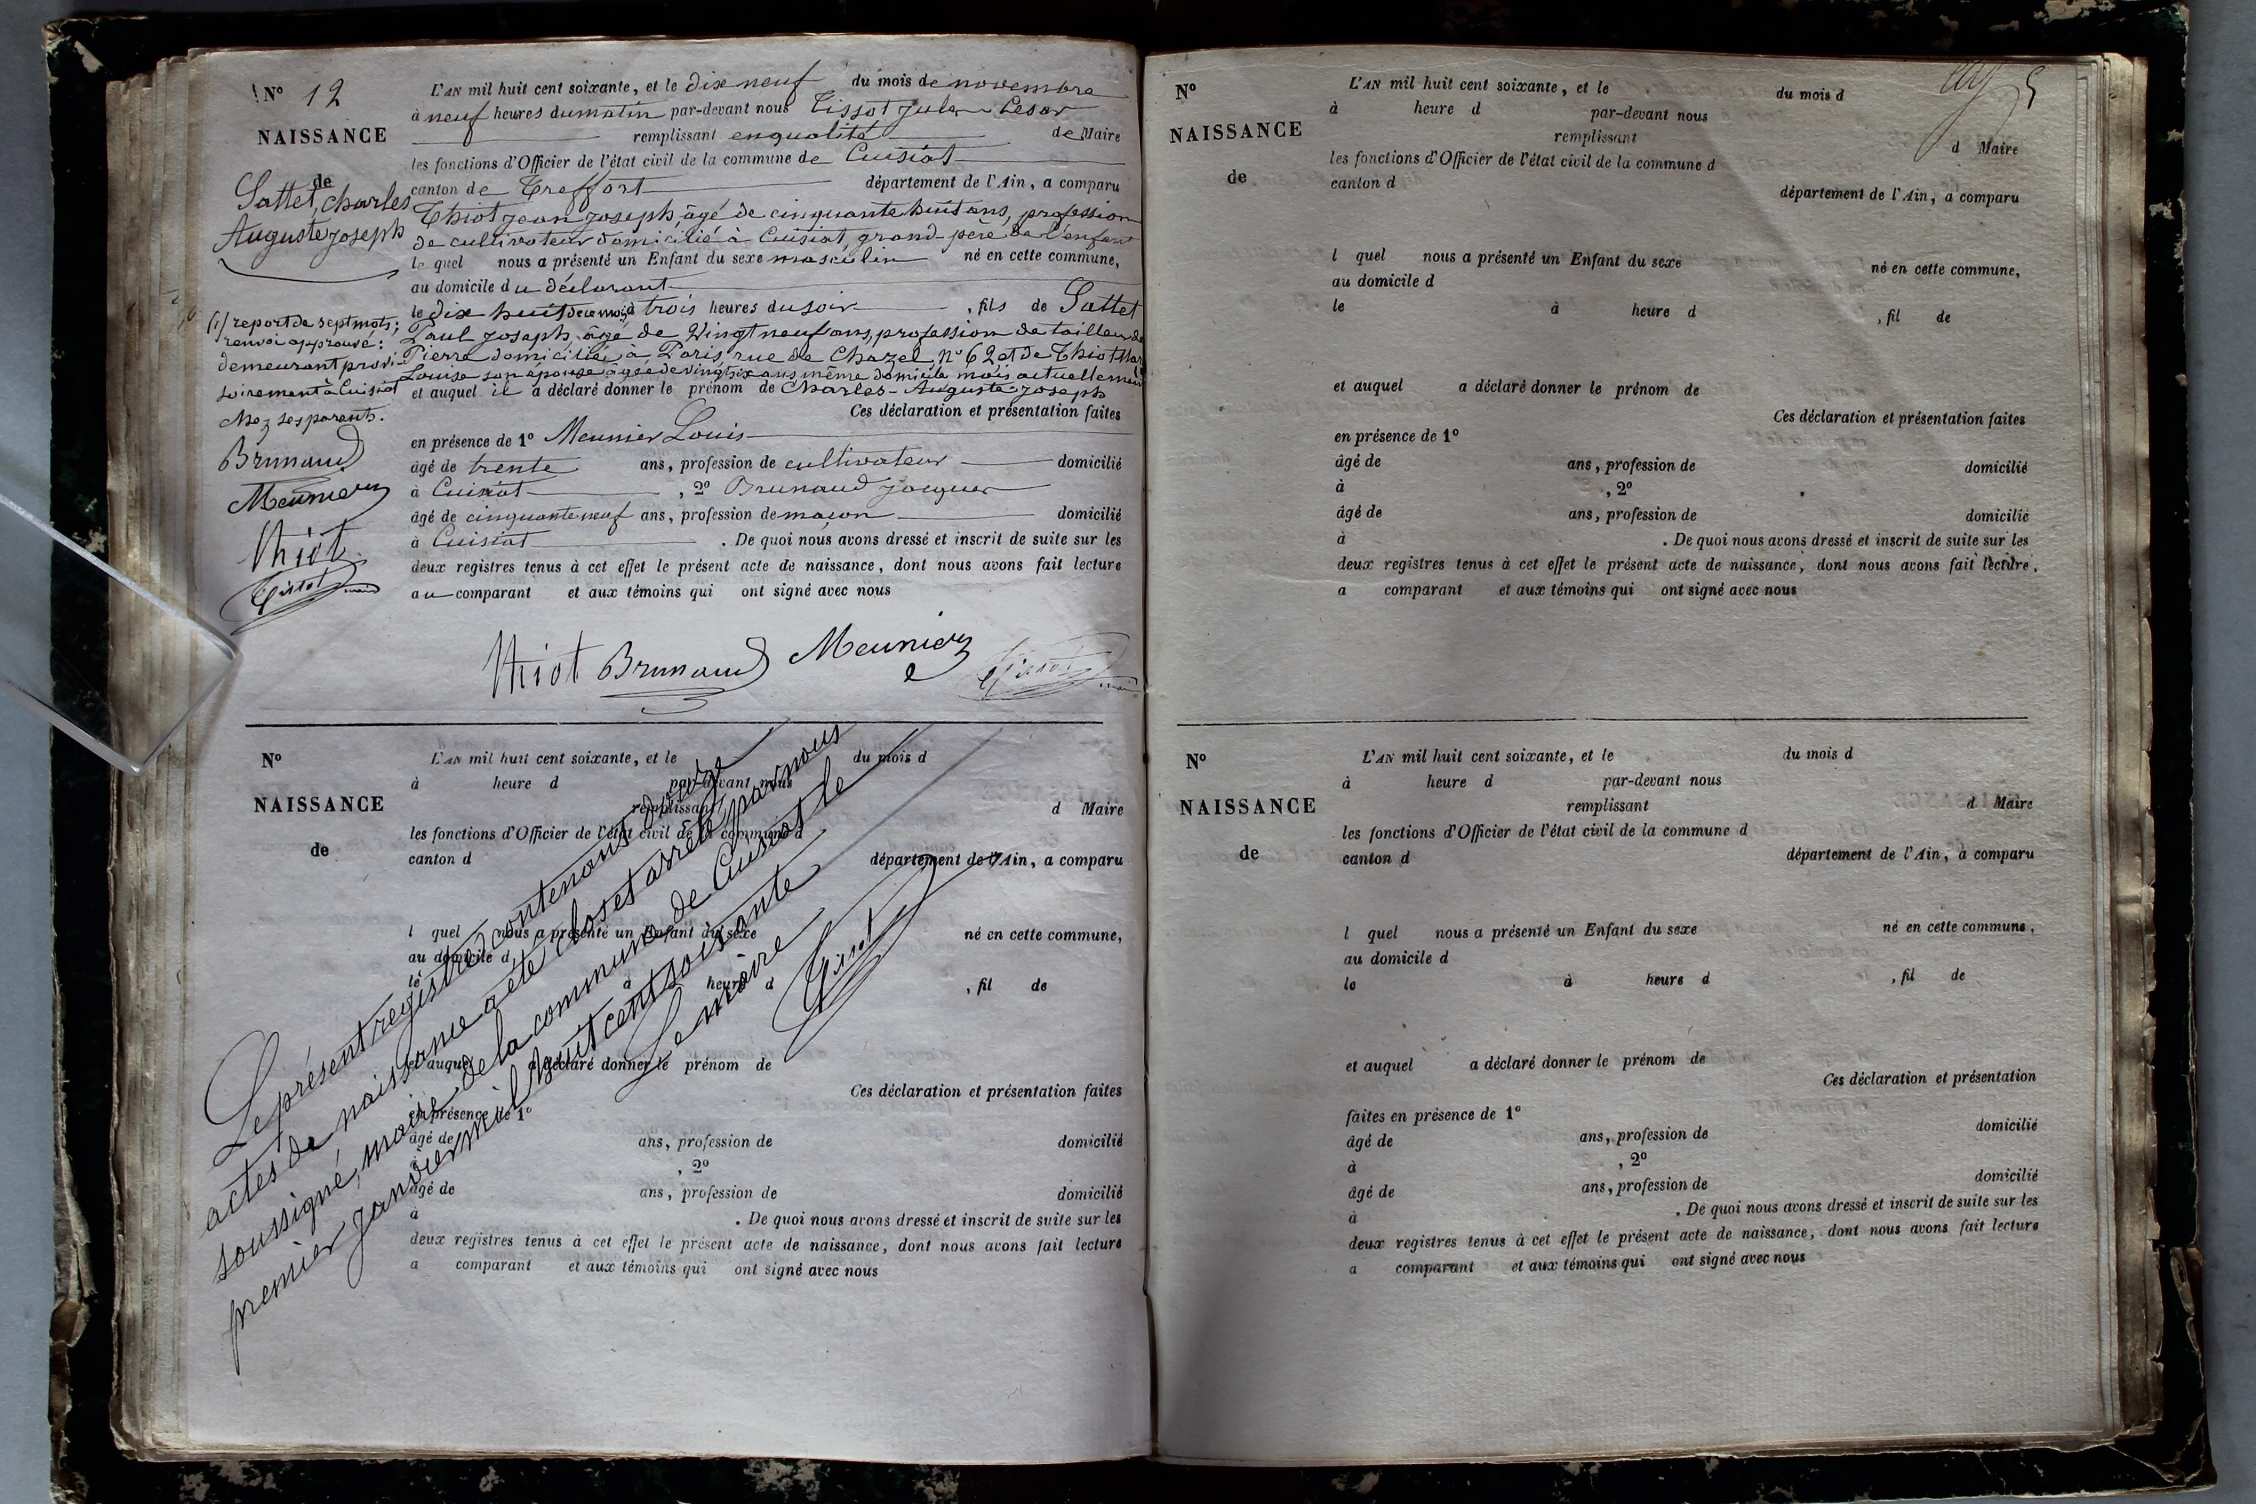 N° 12
NAISSANCE
de
Sattet, charles
Auguste joseph
L'AN mil huit cent soixante, et le dix neuf du mois de novembre
à neuf heures du matin par-devant nous Tissot Jules Cesar
remplissant en qualité de Maire
les fonctions d'Officier de l'état civil de la commune de Cuisiat
canton de Treffort département de l'Ain, a comparu
Thiot jean joseph, âgé de cinquante huit ans, profession
de cultivateur domicilié à Cuisiat, grand-père de l'enfant
le quel nous a présenté un Enfant du sexe masculin né en cette commune,
au domicile du déclarant
le dix huit de ce mois à trois heures du soir , fils de Sattet
Paul joseph, âgé de Vingt neuf ans, profession de tailleur de
Pierre domicilié à Paris, rue de Chazel, n° 62 et de Thiot
Louise son épouse âgée de vingt six ans même domicile mais actuellement
et auquel il a déclaré donner le prénom de Charles-Auguste-joseph
Ces déclaration et présentation faites
en présence de 1° Meunier Louis
âgé de trente ans, profession de cultivateur domicilié
à Cuisiat , 2° Brunaud jacques
âgé de cinquante neuf ans, profession de maçon domicilié
à Cuisiat . De quoi nous avons dressé et inscrit de suite sur les
deux registres tenus à cet effet le présent acte de naissance, dont nous avons fait lecture
au comparant et aux témoins qui ont signé avec nous
(1) report de sept mots;
renvoi approuvé:
demeurant provi-
soirement à Cuisiat
chez ses parents.
Brunaud
Meunier
Thiot
Tissot maire
Thiot Brunaud Meunier Tissot maire
N°
NAISSANCE
de
L'AN mil huit cent soixante, et le du mois d
à heure d par-devant nous
remplissant d Maire
les fonctions d'Officier de l'état civil de la commune d
canton d département de l'Ain, a comparu
l quel nous a présenté un Enfant du sexe né en cette commune,
au domicile d
le à heure d , fil de
et auquel a déclaré donner le prénom de
Ces déclaration et présentation faites
en présence de 1°
âgé de ans, profession de domicilié
à , 2°
âgé de ans, profession de domicilié
à . De quoi nous avons dressé et inscrit de suite sur les
deux registres tenus à cet effet le présent acte de naissance, dont nous avons fait lecture
a comparant et aux témoins qui ont signé avec nous
Le présent registre contenant douze
actes de naissance a été clos et arrêté par nous
soussigné, maire de la commune de Cuisiat le
premier janvier mil huit cent soixante
Le maire
Tissot
N°
NAISSANCE
de
L'AN mil huit cent soixante, et le du mois d
à heure d par-devant nous
remplissant d Maire
les fonctions d'Officier de l'état civil de la commune d
canton d département de l'Ain, a comparu
l quel nous a présenté un Enfant du sexe né en cette commune,
au domicile d
le à heure d , fil de
et auquel a déclaré donner le prénom de
Ces déclaration et présentation faites
en présence de 1°
âgé de ans, profession de domicilié
à , 2°
âgé de ans, profession de domicilié
à . De quoi nous avons dressé et inscrit de suite sur les
deux registres tenus à cet effet le présent acte de naissance, dont nous avons fait lecture.
a comparant et aux témoins qui ont signé avec nous
N°
NAISSANCE
de
L'AN mil huit cent soixante, et le du mois d
à heure d par-devant nous
remplissant d Maire
les fonctions d'Officier de l'état civil de la commune d
canton d département de l'Ain, a comparu
l quel nous a présenté un Enfant du sexe né en cette commune,
au domicile d
le à heure d , fil de
et auquel a déclaré donner le prénom de
Ces déclaration et présentation
faites en présence de 1°
âgé de ans, profession de domicilié
à , 2°
âgé de ans, profession de domicilié
à . De quoi nous avons dressé et inscrit de suite sur les
deux registres tenus à cet effet le présent acte de naissance, dont nous avons fait lecture
a comparant et aux témoins qui ont signé avec nous